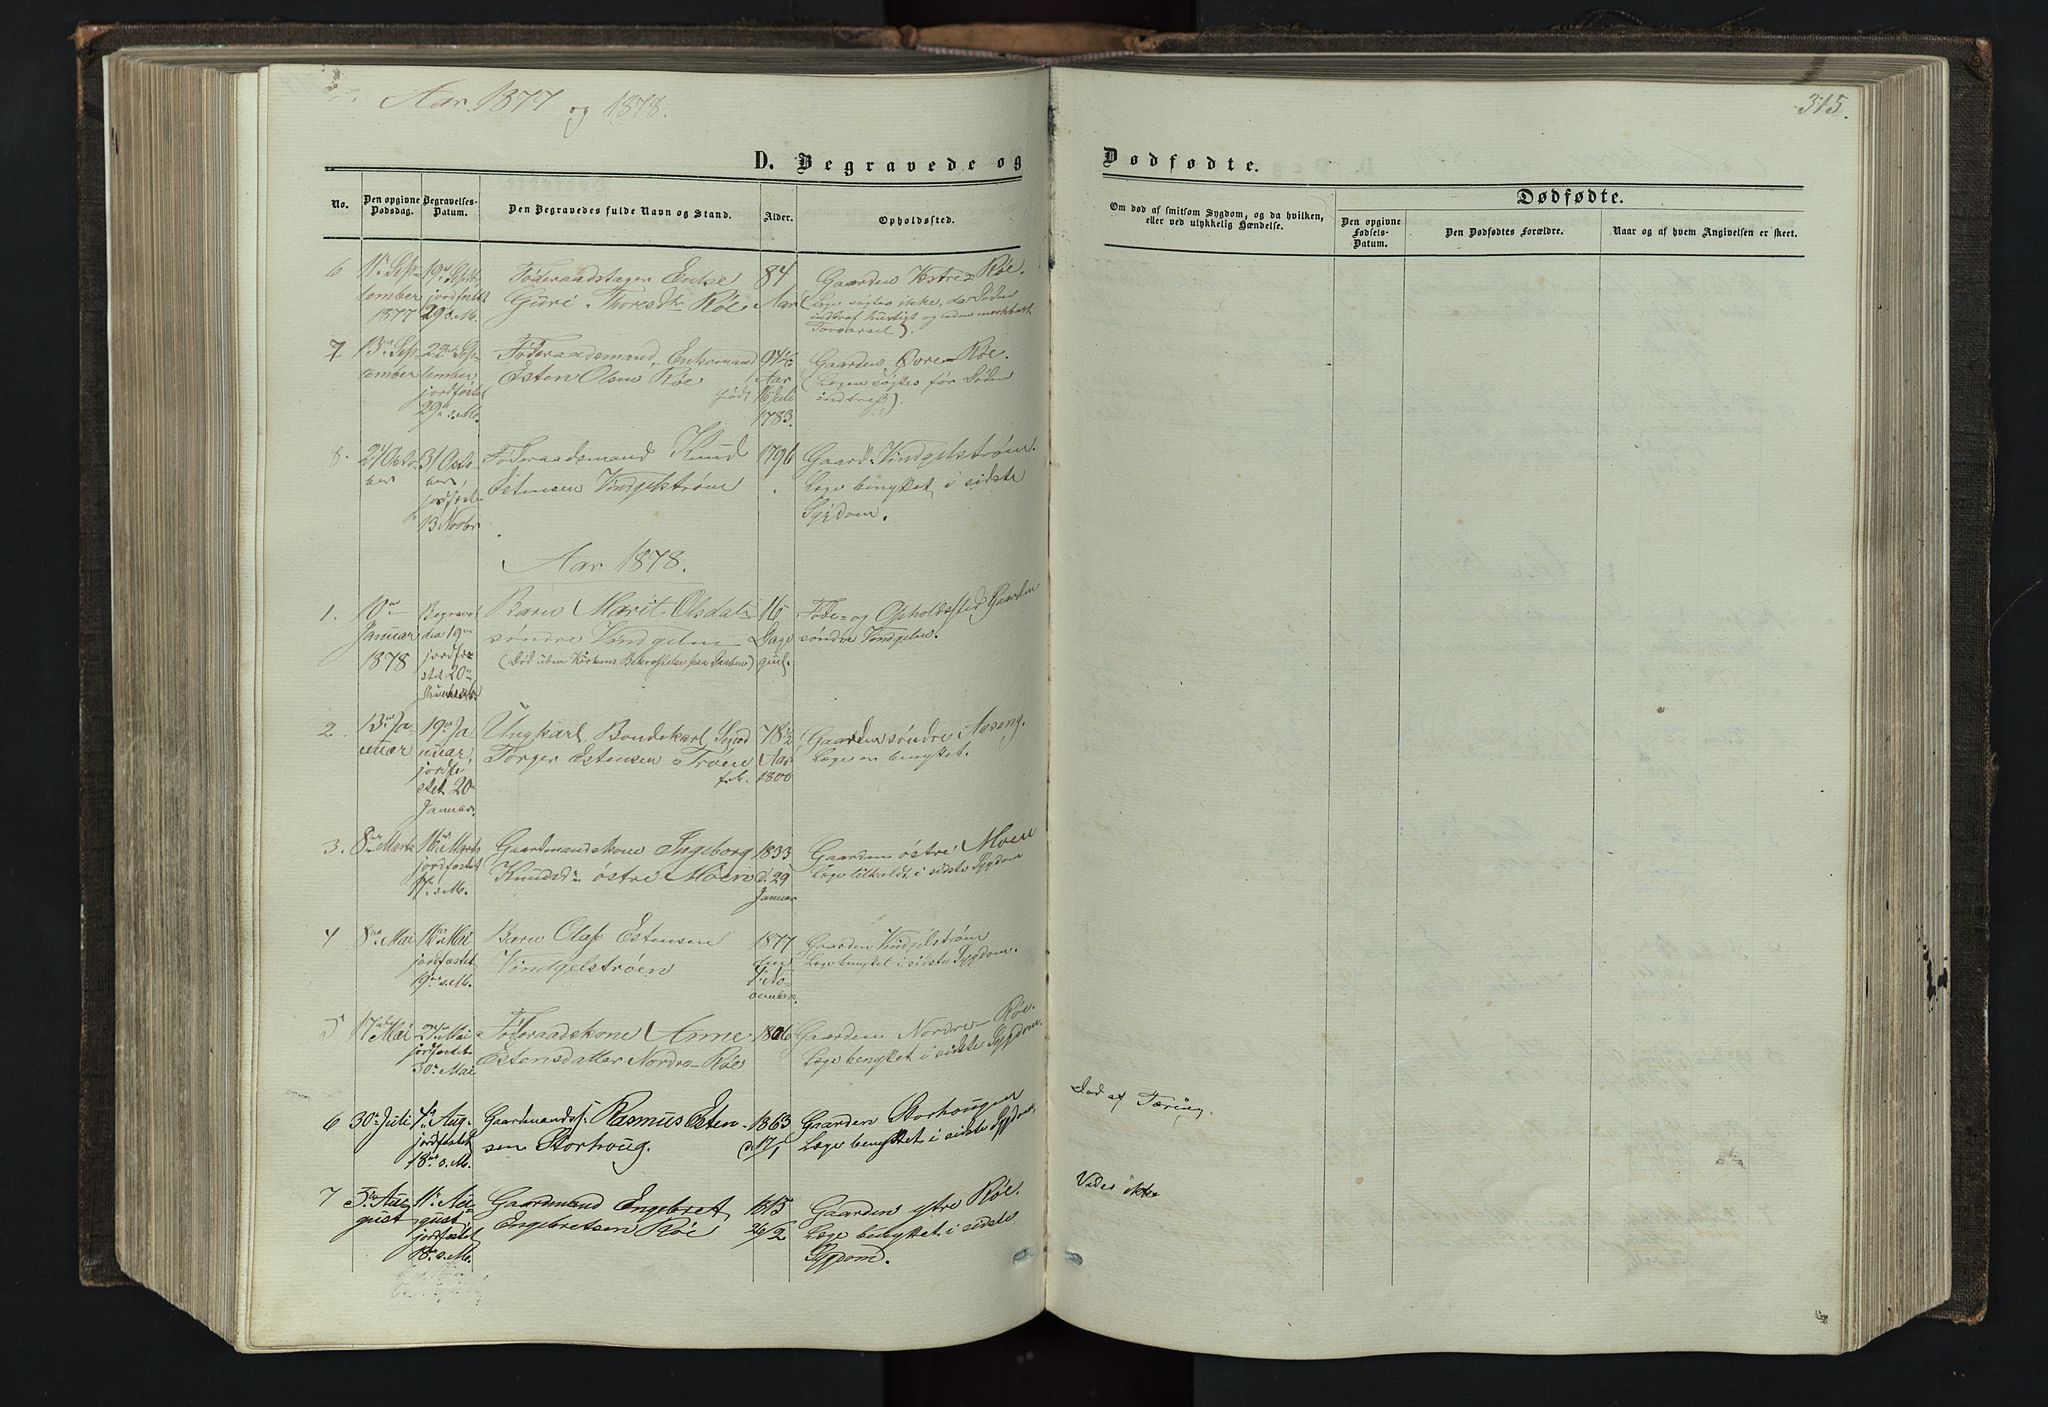 Aar 1877
og 1878.
315.
D. Begravede og Dødfødte.
No.
Den opgivne Dødsdag.
Begravelses-Datum.
Den Begravedes fulde Navn og Stand.
Alder.
Opholdssted.
Om død af smitsom Sygdom, og da hvilken, eller ved ulykkelig Hændelse.
Dødfødte.
Den opgivne Fødsels-Datum.
Den Dødfødtes Forældre.
Naar og af hvem Angivelsen er skeet.
6 11te September 1877
19de Septbr jordfæstet 29de s. M.
Føderaadstager Enke
Guri Thoresdtr Røe
84 Aar
Gaarden Vestre Røe.
(Læge søgtes ikke, da Døden
indtraf hurtigt og uden mærkbart
Forvarsel).
7 13de September
22de September jordfæstet 29de s. M.
Føderaadsmand, Enkemand
Esten Olsen Røe
født
94½ Aar
1783.
Gaarden Øvre Røe.
(Lægen søgtes før Døden
indtraf).
8. 24 October
31 October, jordfæstet 13 Novbr
Føderaadsmand Knud
Estensen Vindgelstrøen
1796
Gaardn Vindgelstrøen.
Læge benyttet i sidste
Sygdom.
Aar 1878.
1. 10de Januar 1878
Begravet den 19de jordfæstet 20de
Barn Marit Olsdatr
søndre Vindgelen
(Død uden Kirkens Bekræftelse paa Daaben)
16 Dage gml.
Føde- og Opholdssted Gaarden
søndre Vindgelen.
2. 13de Januar
19de Januar, jordfæstet 20 Januar
Ungkarl Bondekarl
Torger Estensen Trøen
feb.
78½ Aar 1800
Gaarden søndre Aaseng.
Læge en benyttet.
3. 8de Marts
16de Marts jordfæstet 17de s. M.
Gaardmandskone Ingeborg
Knudsdtr østre Moen
1833 d. 29 Januar
Gaarden østre Moen
Læge tilkaldt i sidste Sygdom
4 8de Mai
16de Mai jordfæstet 19de s. M.
Barn Olaf Estensen
Vindgelstrøen
1877 November.
Gaarden Vindgelstrøen
Læge benyttet i sidste Sygdom.
5 17de Mai
Mai jordfæstet 30te Mai
Føderaadskone Anne
Estensdatter Nordre Røe
1806
Gaarden Nordre Røe.
Læge benyttet i sidste Sygdom.
6 30te Juli
4de Aug. jordfæstet 18de s. M.
Gaardmandss. Rasmus Esten-
sen Storhoug.
1863 d. 17/1
Gaarden Storhougen
Læge benyttet i sidste Sygdom.
Død af Tæring.
7 5te August
11te August jordfæstet 18de s. M.
Gaardmand Engebret
Engebretsen Røe
1815 26/2
Gaarden ystre Røe.
Læge benyttet i sidste
Sygdom.
Vides ikke